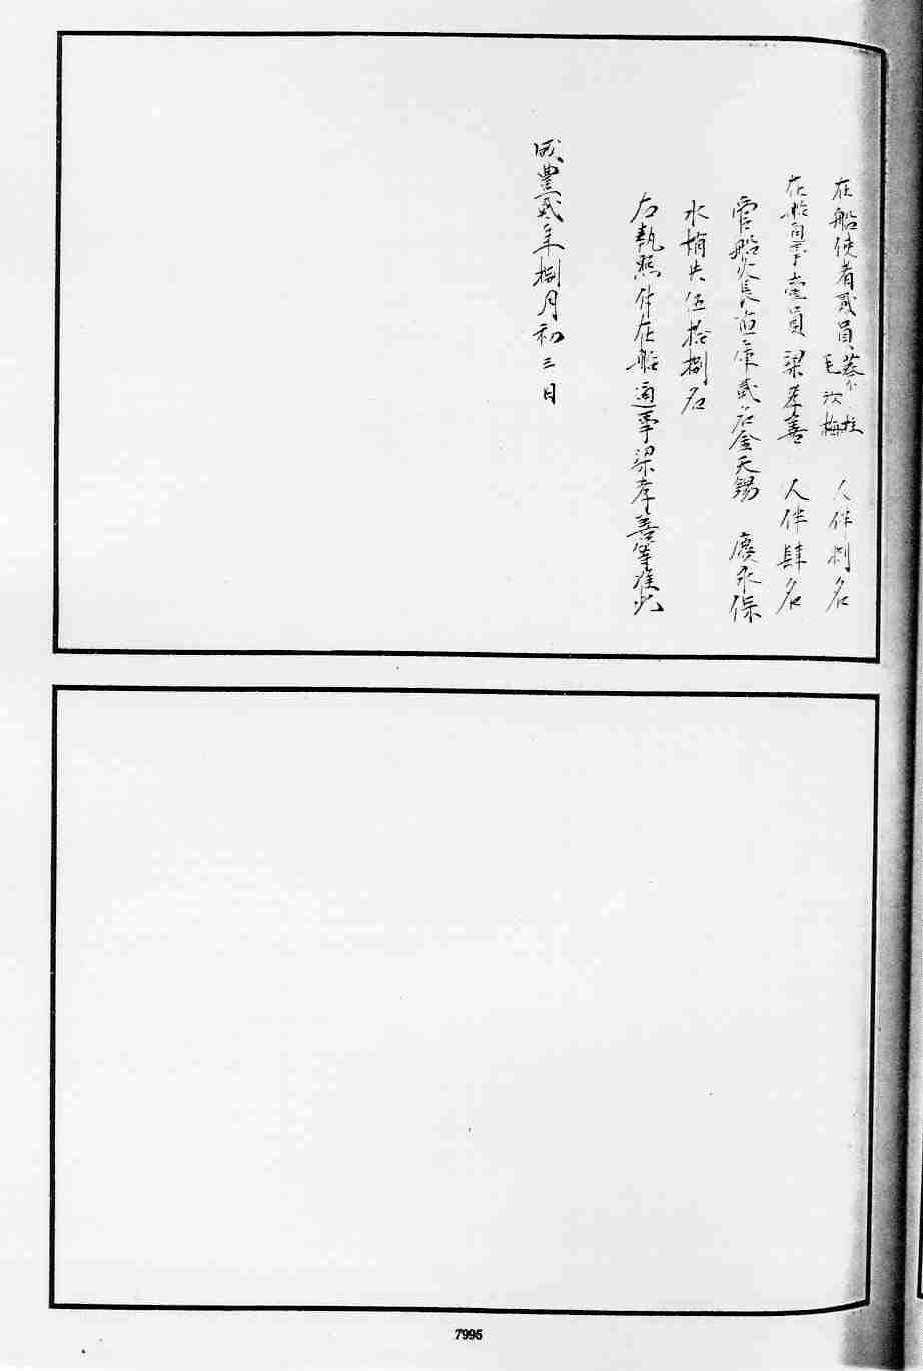 在船使者貳員 蔡大柱 毛汝梅 人伴捌名
在船通事壹員 梁孝善 人伴肆名
管船火長直庫貳名 金天錫 慶永保
水梢共伍拾捌名
右執照付在船通事梁孝善等准此
咸豐貳年捌月初三日
7995